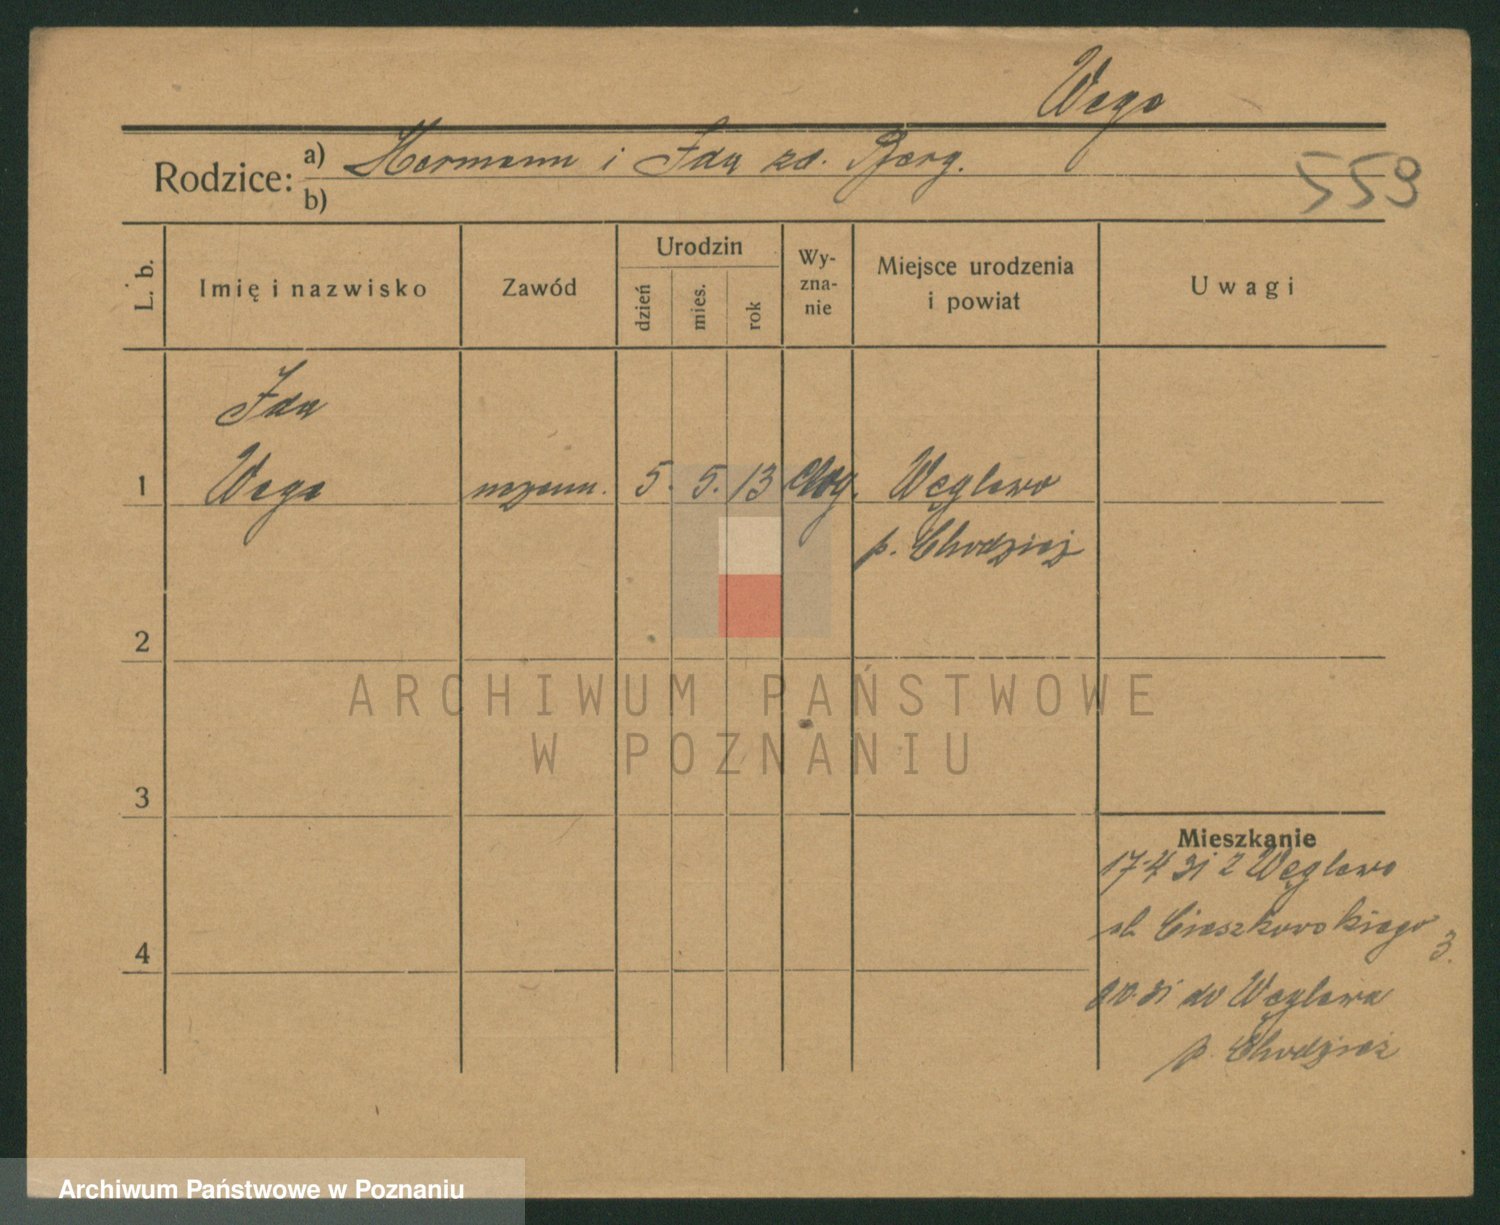 Wege
Rodzice:
a) Hermann i Ida zd. Berg.
b)
559
L. b.
Imię i nazwisko
Zawód
Urodzin
dzień
mies.
rok
Wy-
zna-
nie
Miejsce urodzenia
i powiat
Uwagi
Ida
1 Wege 5. 5. 13 Węglewo
p. Chodzież
2
3
4
Mieszkanie
17-4 31 z Węglewo
ul. Cieszkowskiego 3.
31 do Węglewa
p. Chodzież
ARCHIWUM PAŃSTWOWE
W POZNANIU
Archiwum Państwowe w Poznaniu